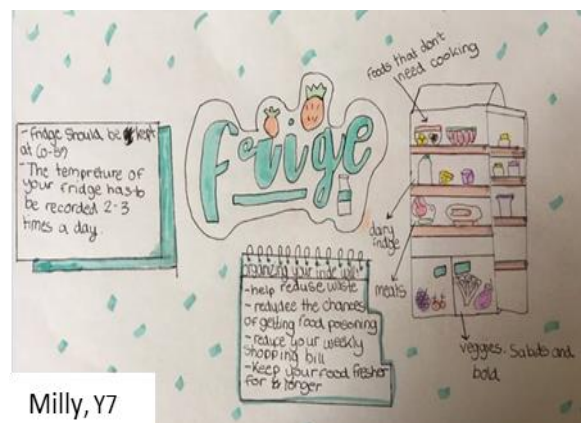 - fridge should be kept
at (0-5?)
- The tempreture of
your fridge has to
be recorded 2-3
times a day.
fridge
foods that don't
need cooking
dairy
fridge
meats
veggies. Salads and
bold
organizing your fridge will:
- help reduse waste
- redudee the chances
of getting food poisoning
- reduce your weekly
shopping bill
- Keep your food fresher
for longer
Milly, Y7